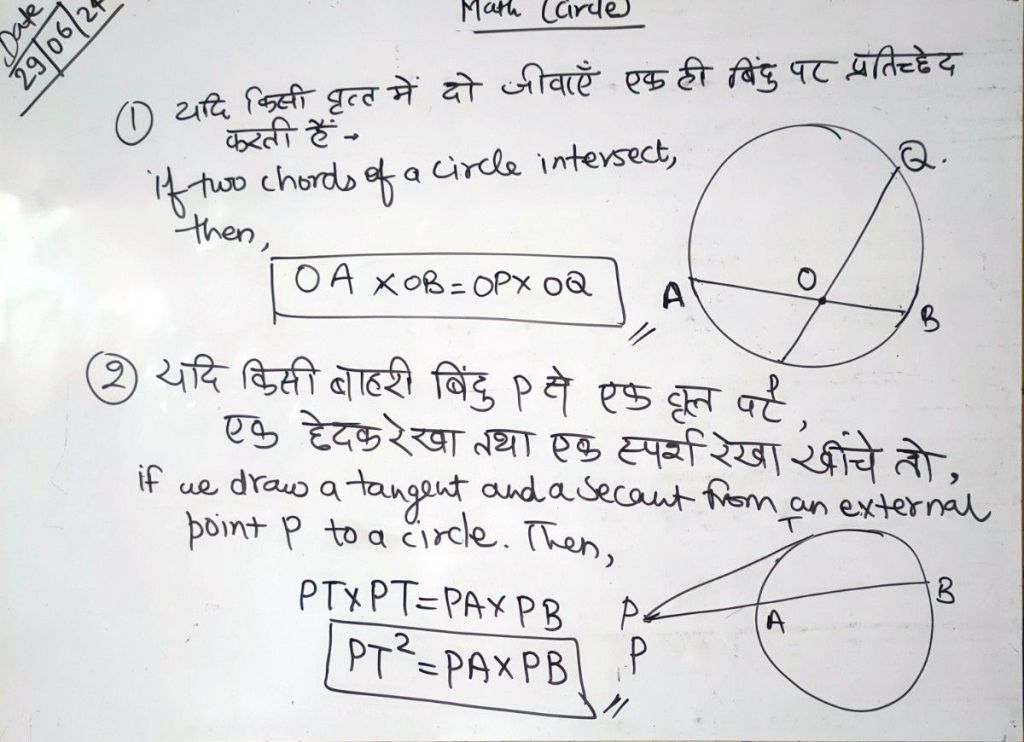 Math (Circle)
Date
29/06/24
① यदि किसी वृत्त में दो जीवाएँ एक ही बिंदु पर प्रतिच्छेद
करती हैं -
if two chords of a circle intersect,
then,
OA × OB = OP × OQ
Q.
O
A
B
P
② यदि किसी बाहरी बिंदु P से एक वृत्त पर,
एक छेदक रेखा तथा एक स्पर्श रेखा खींचे तो,
if we draw a tangent and a secant from an external
point P to a circle. Then,
T
PT × PT = PA × PB
P
A
B
PT² = PA × PB
P